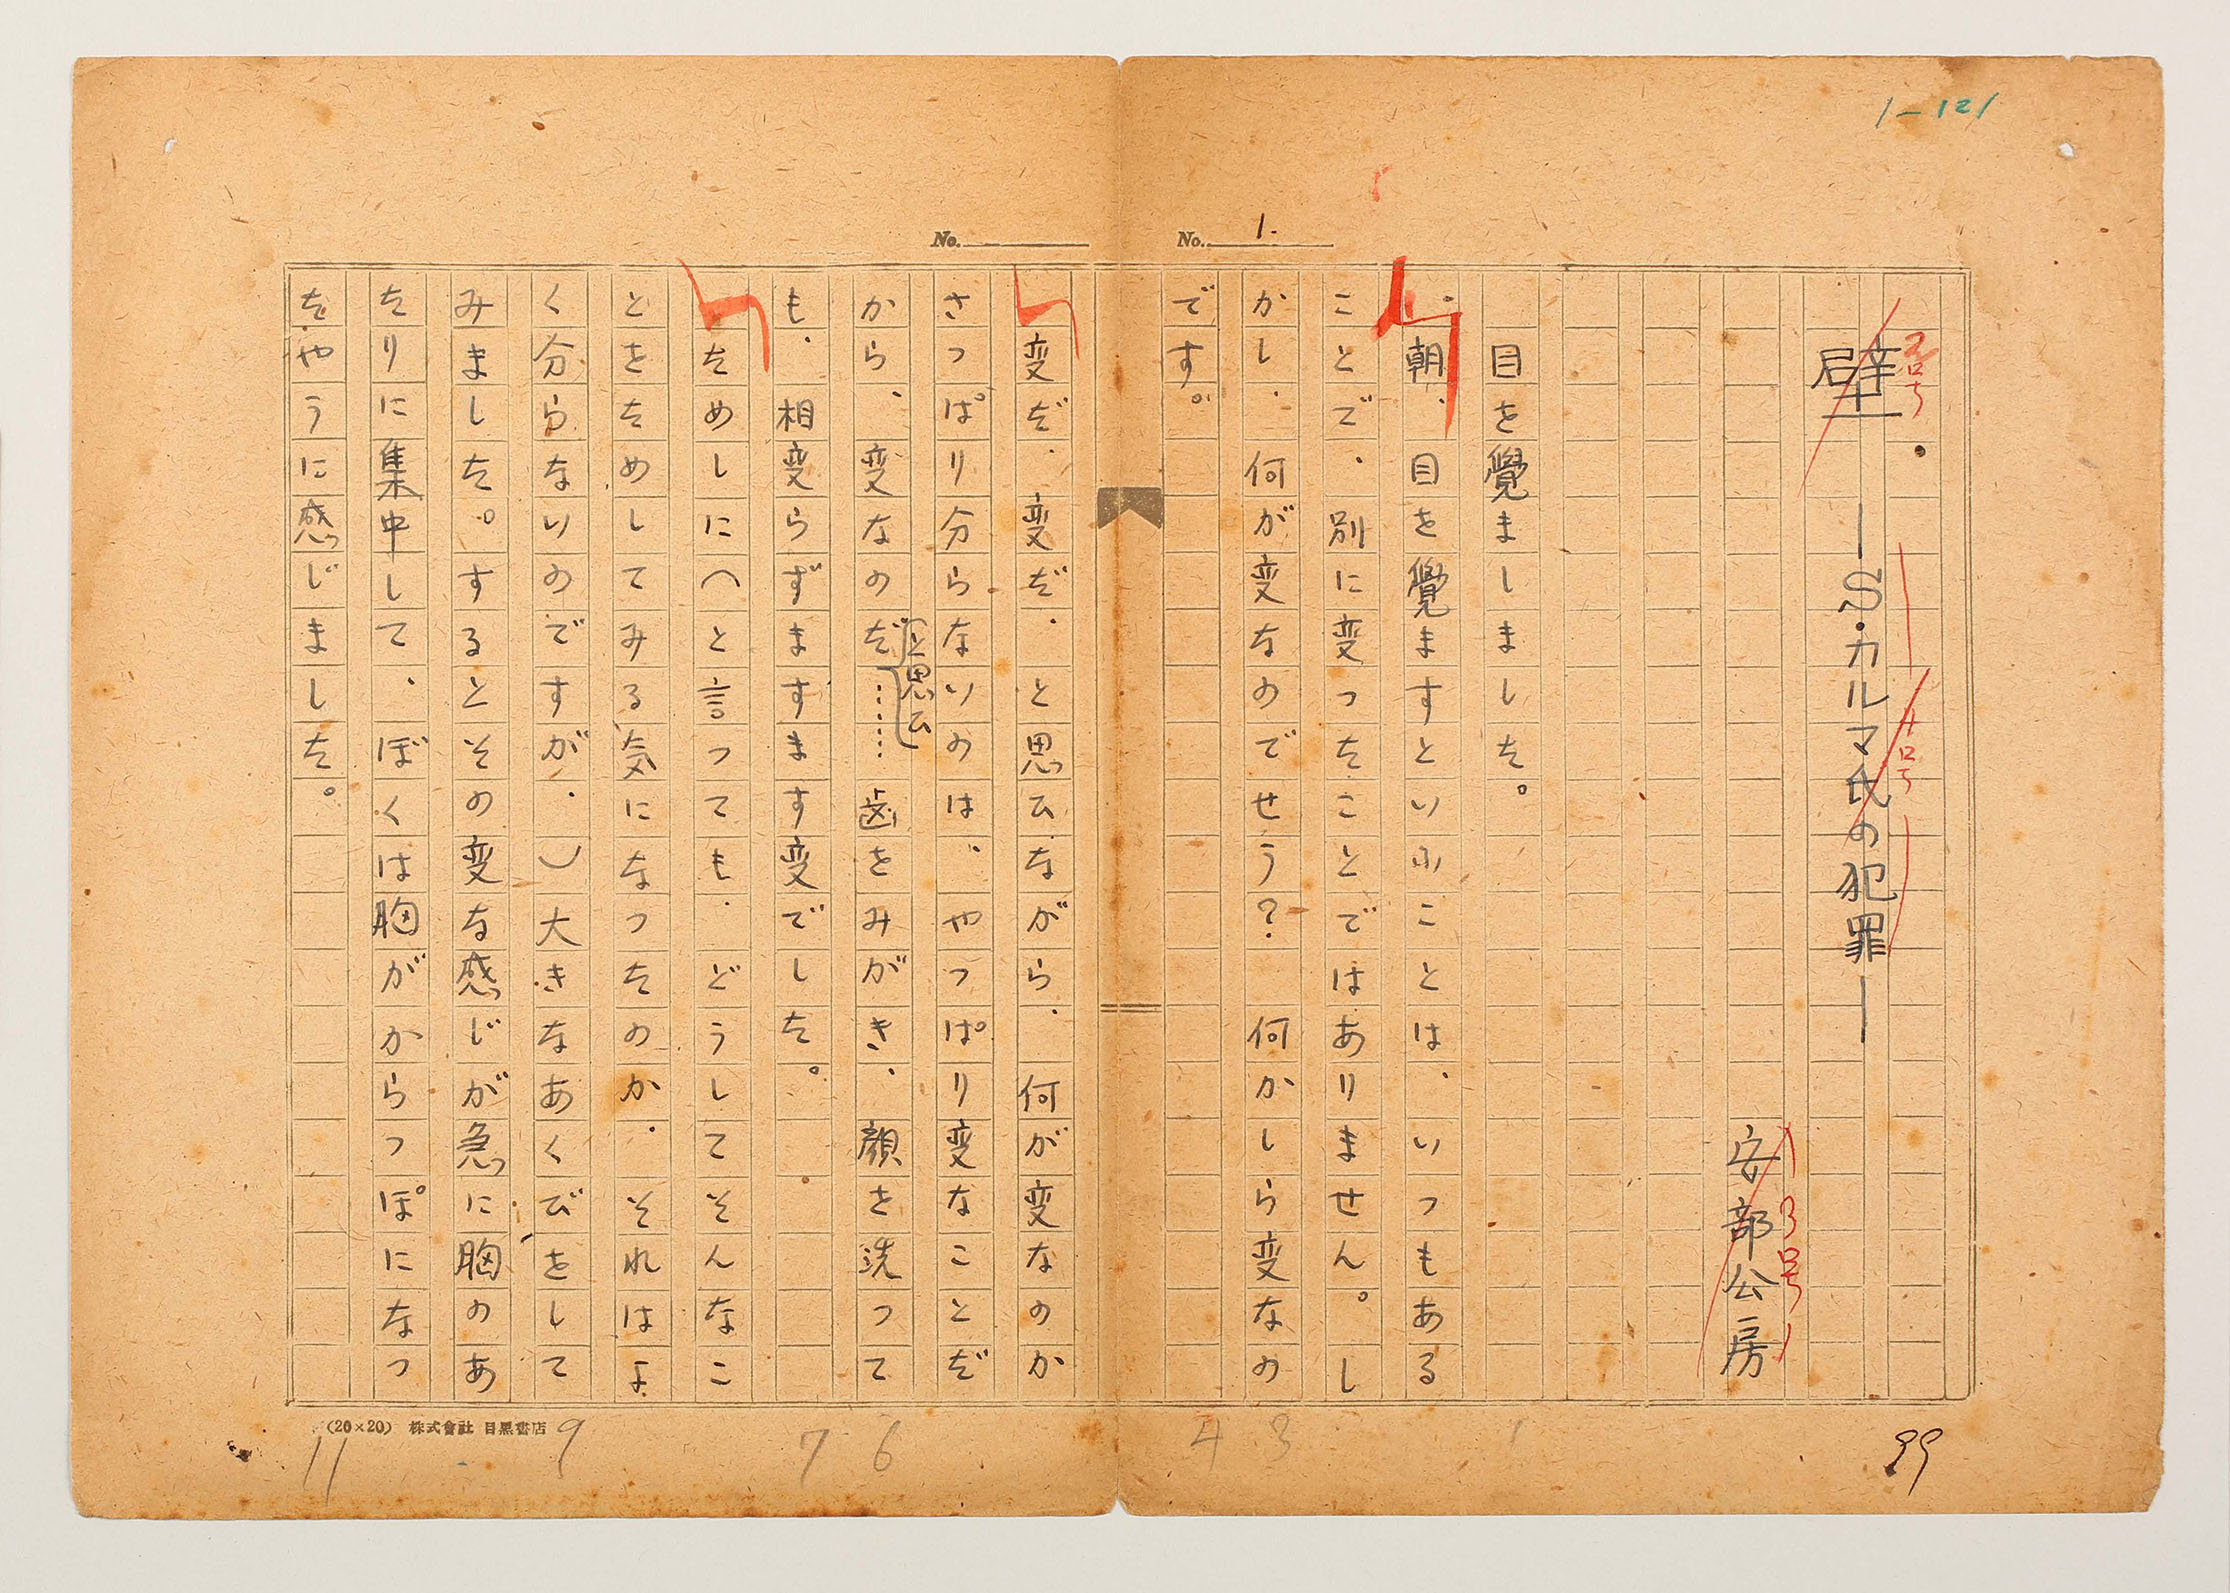 1-121
No. 1.
No.
2号
壁・ ―S・カルマ氏の犯罪―
4号
安部公房
3号
目を覺ましました。
朝、目を覺ますといふことは、いつもある
ことで、別に変つたことではありません。し
かし、何が変なのでせう?何かしら変なの
です。
変だ、変だ、と思ひながら、何が変なのか
さつぱり分らないのは、やつぱり変なことだ
から、変なのだ……歯をみがき、顔を洗つて
と思ひ
も、相変らずますます変でした。
ためしに(と言つても、どうしてそんなこ
とをためしてみる気になつたのか、それはよ
く分らないのですが、)大きなあくびをして
みました。するとその変な感じが急に胸のあ
たりに集中して、ぼくは胸がからつぽになつ
たやうに感じました。
(20×20) 株式會社 目黒書店
11
9
7
6
4
3
1
99